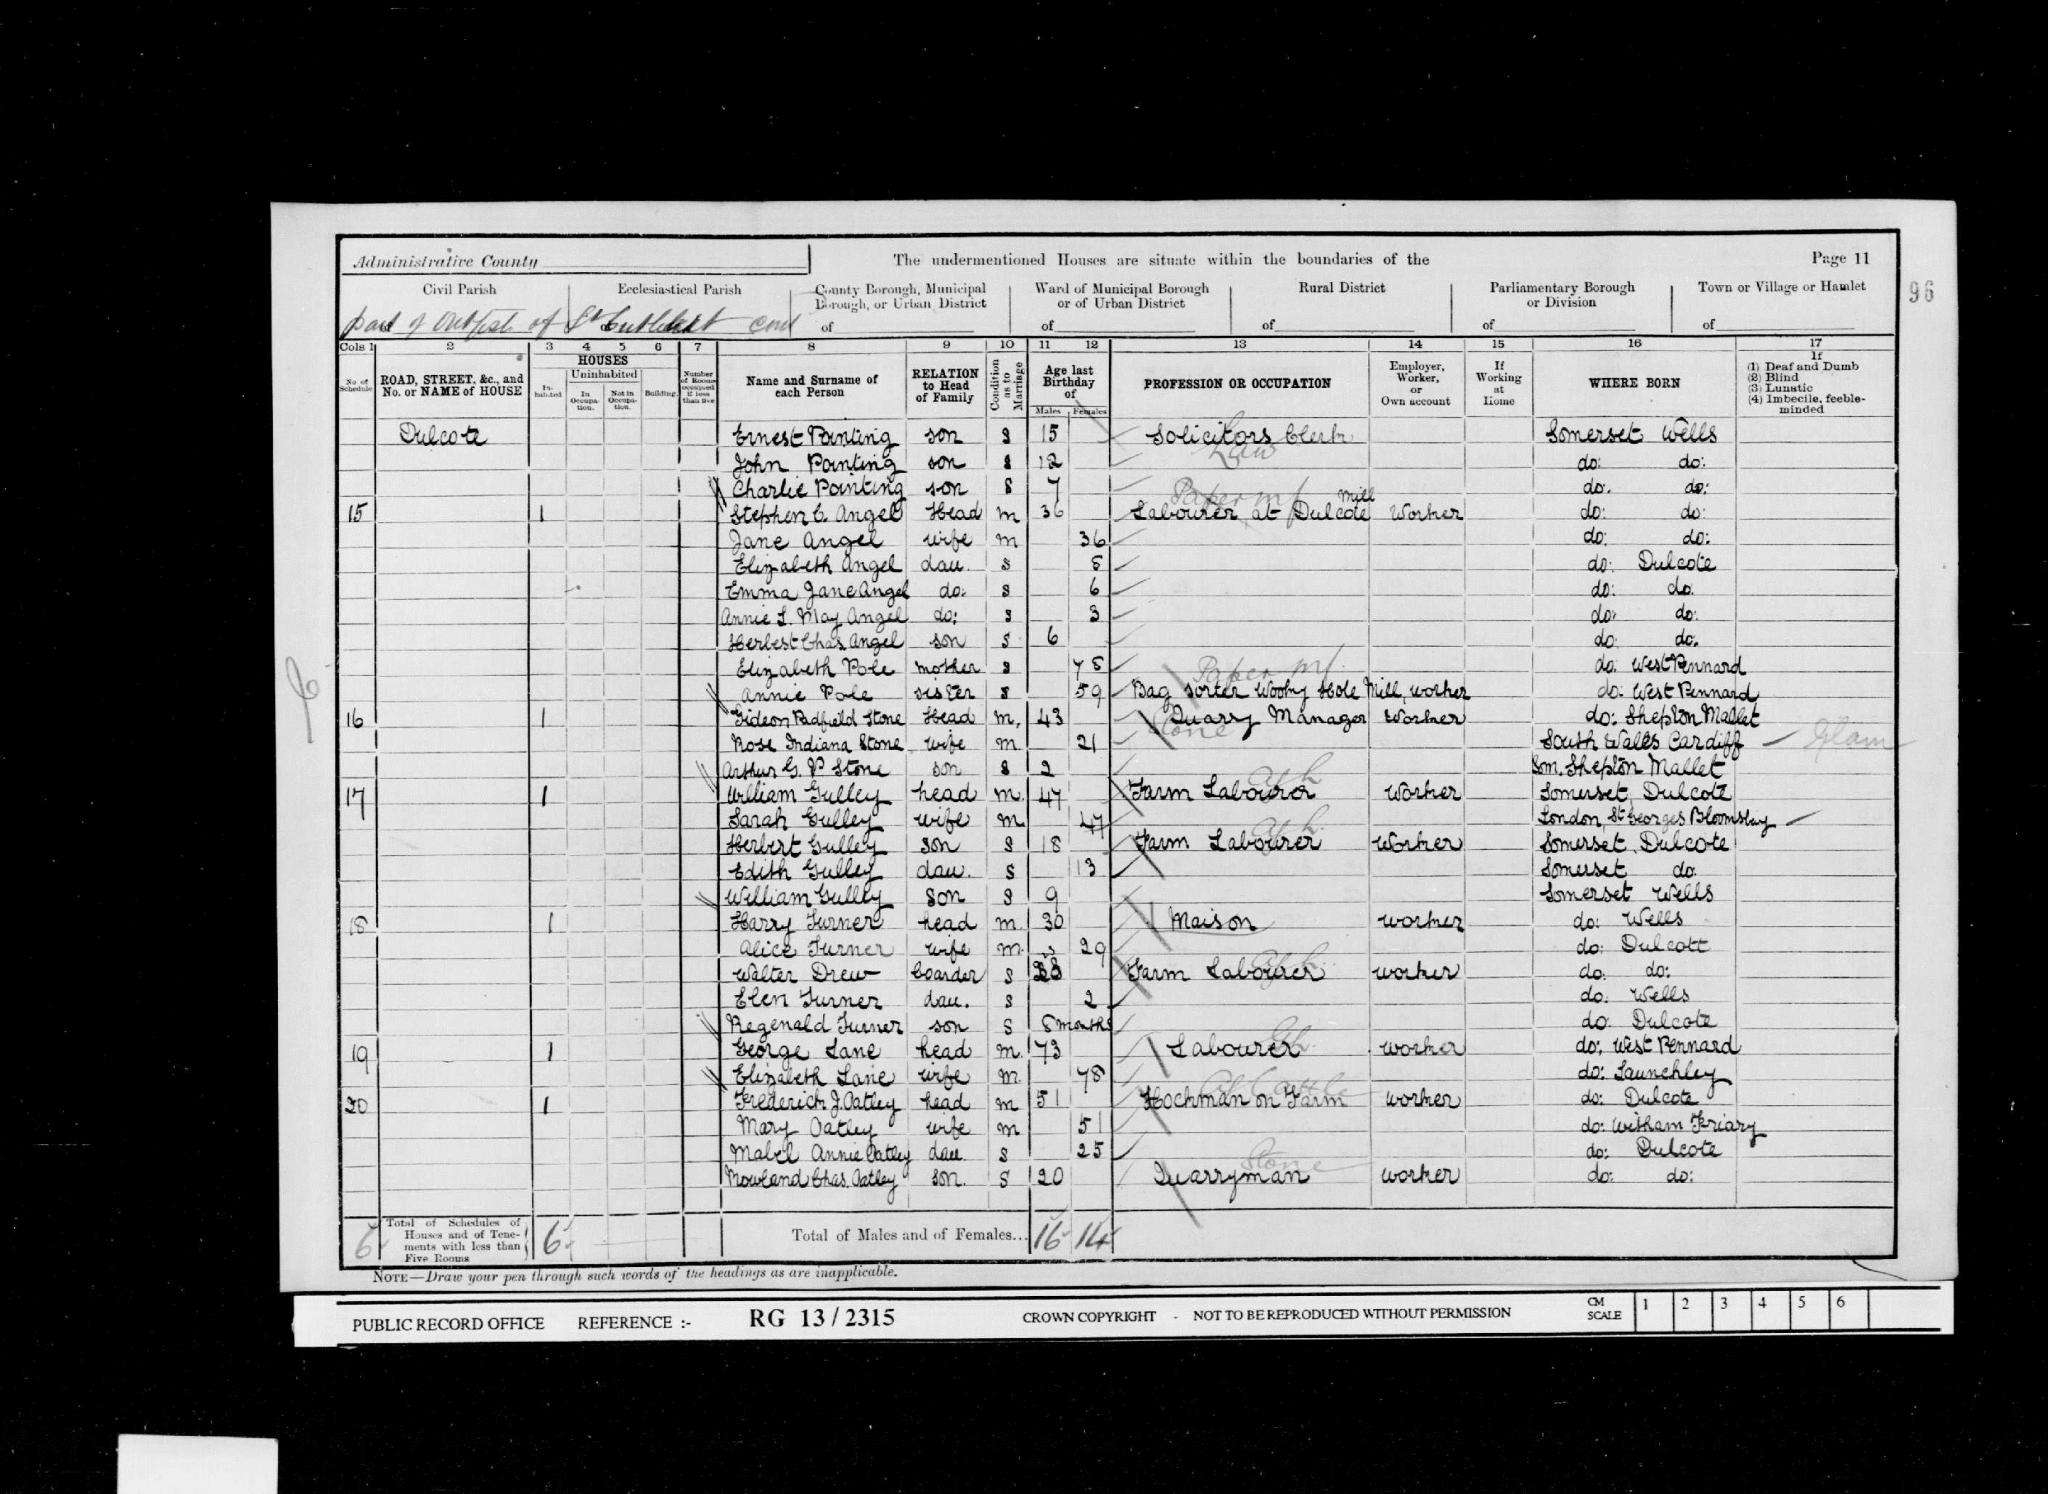 Administrative County
The undermentioned Houses are situate within the boundaries of the
Page 11
96
Civil Parish
Ecclesiastical Parish
County Borough, Municipal Borough, or Urban District
Ward of Municipal Borough or of Urban District
Rural District
Parliamentary Borough or Division
Town or Village or Hamlet
part of of St Cuthbert
of
of
of
of
of
Cols 1 2 3 4 5 6 7 8 9 10 11 12 13 14 15 16 17
No. of Schedule
ROAD, STREET, &c., and No. or NAME of HOUSE
HOUSES
Inhabited
Uninhabited
In Occupation.
Not in Occupation.
Building.
Number of Rooms occupied if less than five
Name and Surname of each Person
RELATION to Head of Family
Condition as to Marriage
Age last Birthday of
Males
Females
PROFESSION OR OCCUPATION
Employer, Worker, or Own account
If Working at Home
WHERE BORN
If
(1) Deaf and Dumb
(2) Blind
(3) Lunatic
(4) Imbecile, feeble-minded
Dulcote Ernest Pointing son S 15 Solicitors Clerk Law Somerset Wells
John Pointing son S 12 do: do:
Charlie Pointing son S 7 do. do:
15 1 Stephen C. Angel Head M 36 Paper mf Labourer at Dulcote Mill Worker do: do:
Jane Angel wife M 36 do: do:
Elizabeth Angel dau. S 8 do: Dulcote
Emma Jane Angel do: S 6 do: do:
Annie L. May Angel do: S 3 do: do:
Herbest Chas. Angel son S 6 do: do.
Elizabeth Pole mother S 78 do: West Pennard
Annie Pole sister S 59 Paper mf. Bag sorter Wooky Hole Mill, worker do: West Pennard
16 1 Gideon Padfield Stone Head M, 43 Stone Quarry Manager Worker do: Shepton Mallet
Rose Indiana Stone wife M 21 South Wales Cardiff Glam
Arthur G. P Stone son S 2 Som. Shepton Mallet
17 1 William Gulley head M. 47 Farm Labouror Worker Somerset Dulcote
Sarah Gulley wife M 47 London, St Georges Bloomsbay
Herbert Gulley son S 18 Farm Labourer Worker Somerset. Dulcote
Edith Gulley dau. S 13 Somerset do.
William Gulley son S 9 Somerset Wells
18 1 Harry Turner head M. 30 Maison worker do: Wells
Alice Turner wife M. 29 do: Dulcott
Walter Drew boarder S Farm Labourer worker do: do:
Elen Turner dau. S 2 do: Wells
Regenald Turner son S 8 months do: Dulcote
19 1 George Lane head M. 73 Labourer worker do: West Pennard
Elizabeth Lane wife M. 78 do: Launchley
20 1 Frederick J. Oatley head M 51 Cattle Hochman on Farm worker do: Dulcote
Mary Oatley wife M 51 do: Witham Friary
Mabel Annie Oatley dau. S 25 do: Dulcote
Rowland Chas. Oatley son. S 20 Stone Quarryman worker do: do:
6 Total of Schedules of Houses and of Tenements with less than Five Rooms 6
Total of Males and of Females... 16 14
NOTE—Draw your pen through such words of the headings as are inapplicable.
PUBLIC RECORD OFFICE REFERENCE :- RG 13 / 2315 CROWN COPYRIGHT - NOT TO BE REPRODUCED WITHOUT PERMISSION CM SCALE 1 2 3 4 5 6